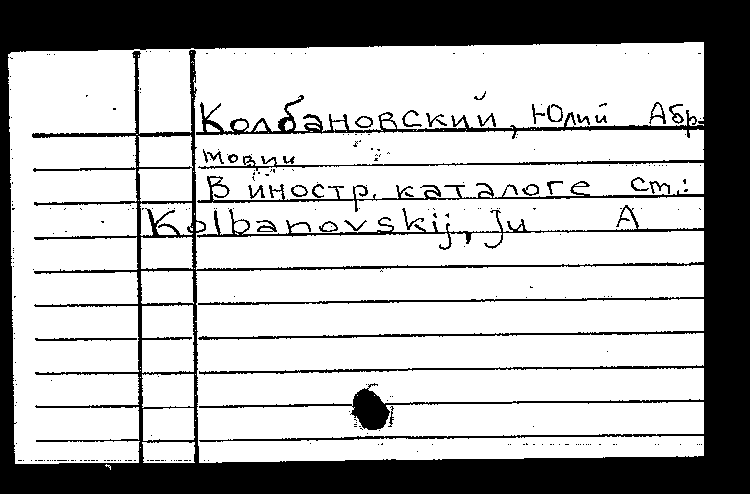 Колбановский, Юлий Абр-
мович
В иностр. каталоге см.:
Kolbanovskij, Ju A